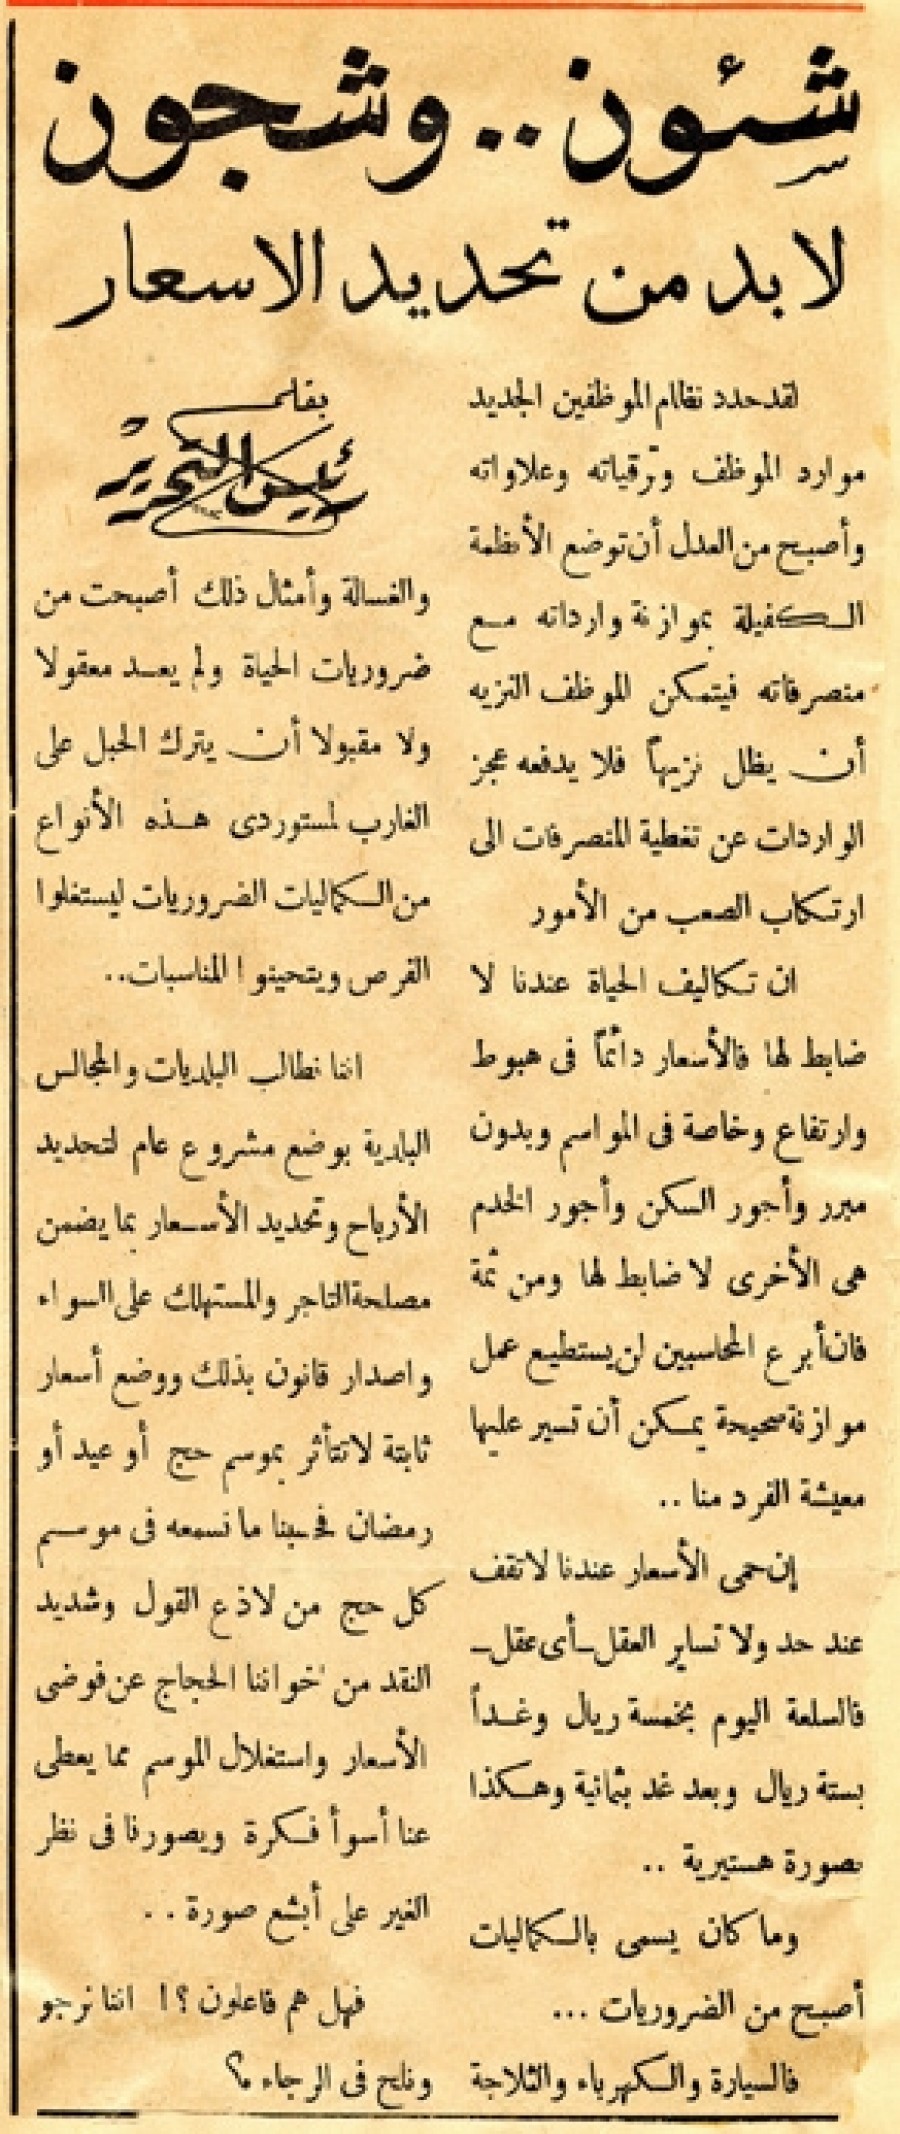 شئون .. وشجون
لا بد من تحديد الاسعار
لقد حدد نظام الموظفين الجديد
موارد الموظف وترقياته وعلاواته
وأصبح من العدل أن توضع الأنظمة
الـكفيلة بموازنة وارداته مـع
منصرفاته فيتمكن الموظف النزيه
أن يظل نزيهاً فلا يدفعه عجز
الواردات عن تغطية المنصرفات الى
ارتكاب الصعب من الأمور
ان تكاليف الحياة عندنا لا
ضابط لها فالأسعار دائماً فى هبوط
وارتفاع وخاصة فى المواسم وبدون
مبرر وأجور السكن وأجور الخدم
هى الأخرى لا ضابط لها ومن ثمة
فان أبرع المحاسبين لن يستطيع عمل
موازنة صحيحة يمكن أن تسير عليها
معيشة الفرد منا ..
إن حمى الأسعار عندنا لا تقف
عند حد ولا تساير العقل ـ أى عقل ـ
فالسلعة اليوم بخمسة ريال وغـداً
بستة ريال وبعد غد بثمانية وهـكذا
بصورة هستيرية ..
وما كان يسمى بالـكماليات
أصبح من الضروريات ...
فالسيارة والـكهرباء والثلاجة
بقلم
رئيس التحرير
والغسالة وأمثال ذلك أصبحت من
ضروريات الحياة ولم يعـد معقولا
ولا مقبولا أن يترك الحبل على
الغارب لمستوردى هـذه الأنواع
من الـكماليات الضروريات ليستغلوا
الفرص ويتحينوا المناسبات..
اننا نطالب البلديات والمجالس
البلدية بوضع مشروع عام لتحديد
الأرباح وتحديد الأسـعار بما يضمن
مصلحة التاجر والمستهلك على السواء
واصدار قانون بذلك ووضع أسعار
ثابتة لا تتأثر بموسم حج أو عيد أو
رمضان فحسبنا ما نسمعه فى موسـم
كل حج من لاذع القول وشديد
النقد من اخواننا الحجاج عن فوضى
الأسعار واستغلال الموسم مما يعطى
عنا أسوأ فـكرة ويصورنا فى نظر
الغير على أبشع صورة ..
فهل هم فاعلون ؟! اننا نرجو
ونلح فى الرجاء م؟